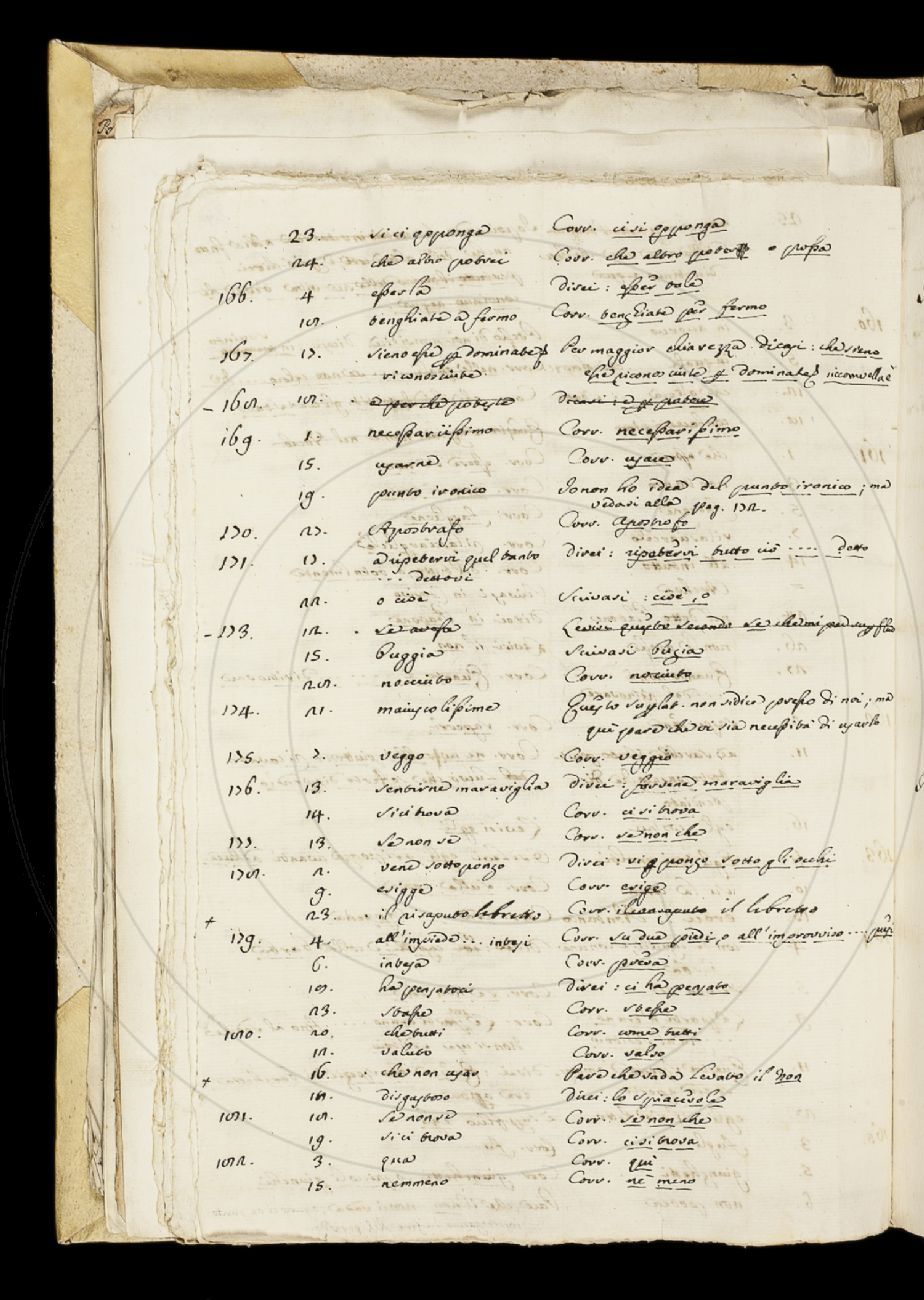 Po
23. si ci opponga Corr. ci si opponga
24. che altro potrei Corr. che altro o possa
166. 4 esser la Direi: esser vale
18. venghiate a fermo Corr. venghiate per fermo
167. 7. sieno esse dominate Per maggior chiarezza dicasi: che sieno
riconosciute esse riconosciute dominate
- 168. 18. e perche poteste Dicasi: e
169. 1. necessariissimo Corr. necessarissimo
15. usarne Corr. usare
19. punto ironico Io non ho idea del punto ironico; ma
vedasi alla pag. 172.
170. 27. Apostrafo Corr. Apostrofo
171. 7. a ripetervi quel tanto Direi: ripetervi tutto ciò .... detto
... dettovi
22. o cioè Scrivasi: cioè, o
- 173. 12. se avesse Levisi questo secondo se che mi par superfluo
15. buggia Scrivasi bugia
28. nocciuto Corr. nociuto
174. 21. maiuscolissime Questo superlat. non si dice presso di noi; ma
quì pare che vi sia necessità di usarlo
175. 7. veggo Corr. veggio
176. 13. sentirne maraviglia Direi: farvene maraviglia
14. si ci trova Corr. ci si trova
177. 13. se non se Corr. se non che
178. 2. vene sottopongo Direi: vi pongo sotto gli occhi
9. esigge Corr. esige
+ 23. il risaputo libretto Corr. il libretto
179. 4. all'impiedi ... intesi Corr. su due piedi, o all'improvviso ...
6. intesa Corr. presa
18. ha pensatoci Direi: ci ha pensato
23. stasse Corr. stesse
180. 20. che tutti Corr. come tutti
12. valuto Corr. valso
+ 16. che non usar Pare che vada levato il non
18. disgustoso Direi: lo spiacevole
181. 18. se non se Corr. se non che
19. si ci trova Corr. ci si trova
182. 3. qua Corr. quì
15. nemmeno Corr. nè meno